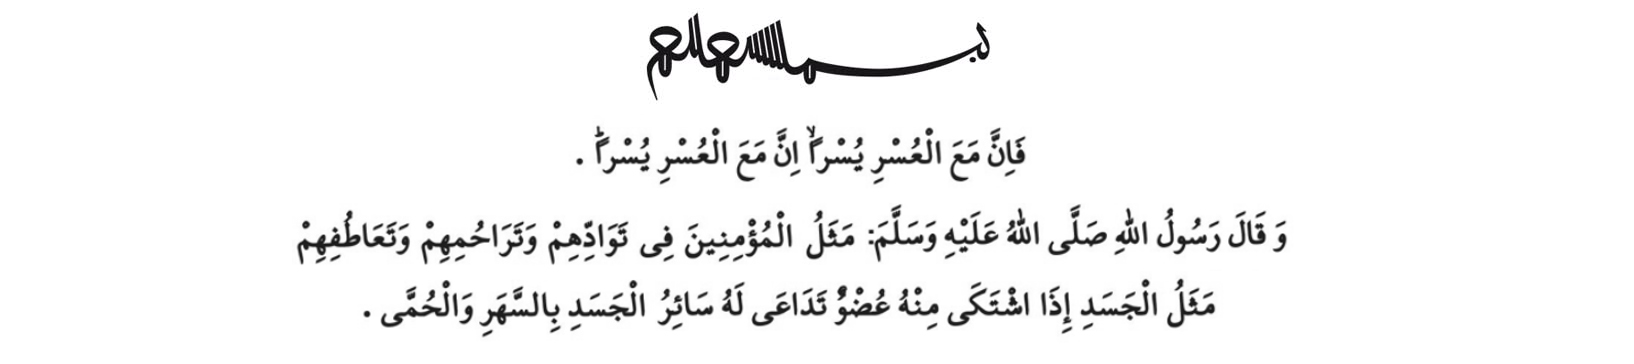 بسم الله الرحمن الرحيم
فَاِنَّ مَعَ الْعُسْرِ يُسْراًۙ اِنَّ مَعَ الْعُسْرِ يُسْراًۜ .
وَ قَالَ رَسُولُ اللهِ صَلَّى اللهُ عَلَيْهِ وَسَلَّمَ: مَثَلُ الْمُؤْمِنِينَ فِى تَوَادِّهِمْ وَتَرَاحُمِهِمْ وَتَعَاطُفِهِمْ
مَثَلُ الْجَسَدِ إِذَا اشْتَكَى مِنْهُ عُضْوٌ تَدَاعَى لَهُ سَائِرُ الْجَسَدِ بِالسَّهَرِ وَالْحُمَّى .